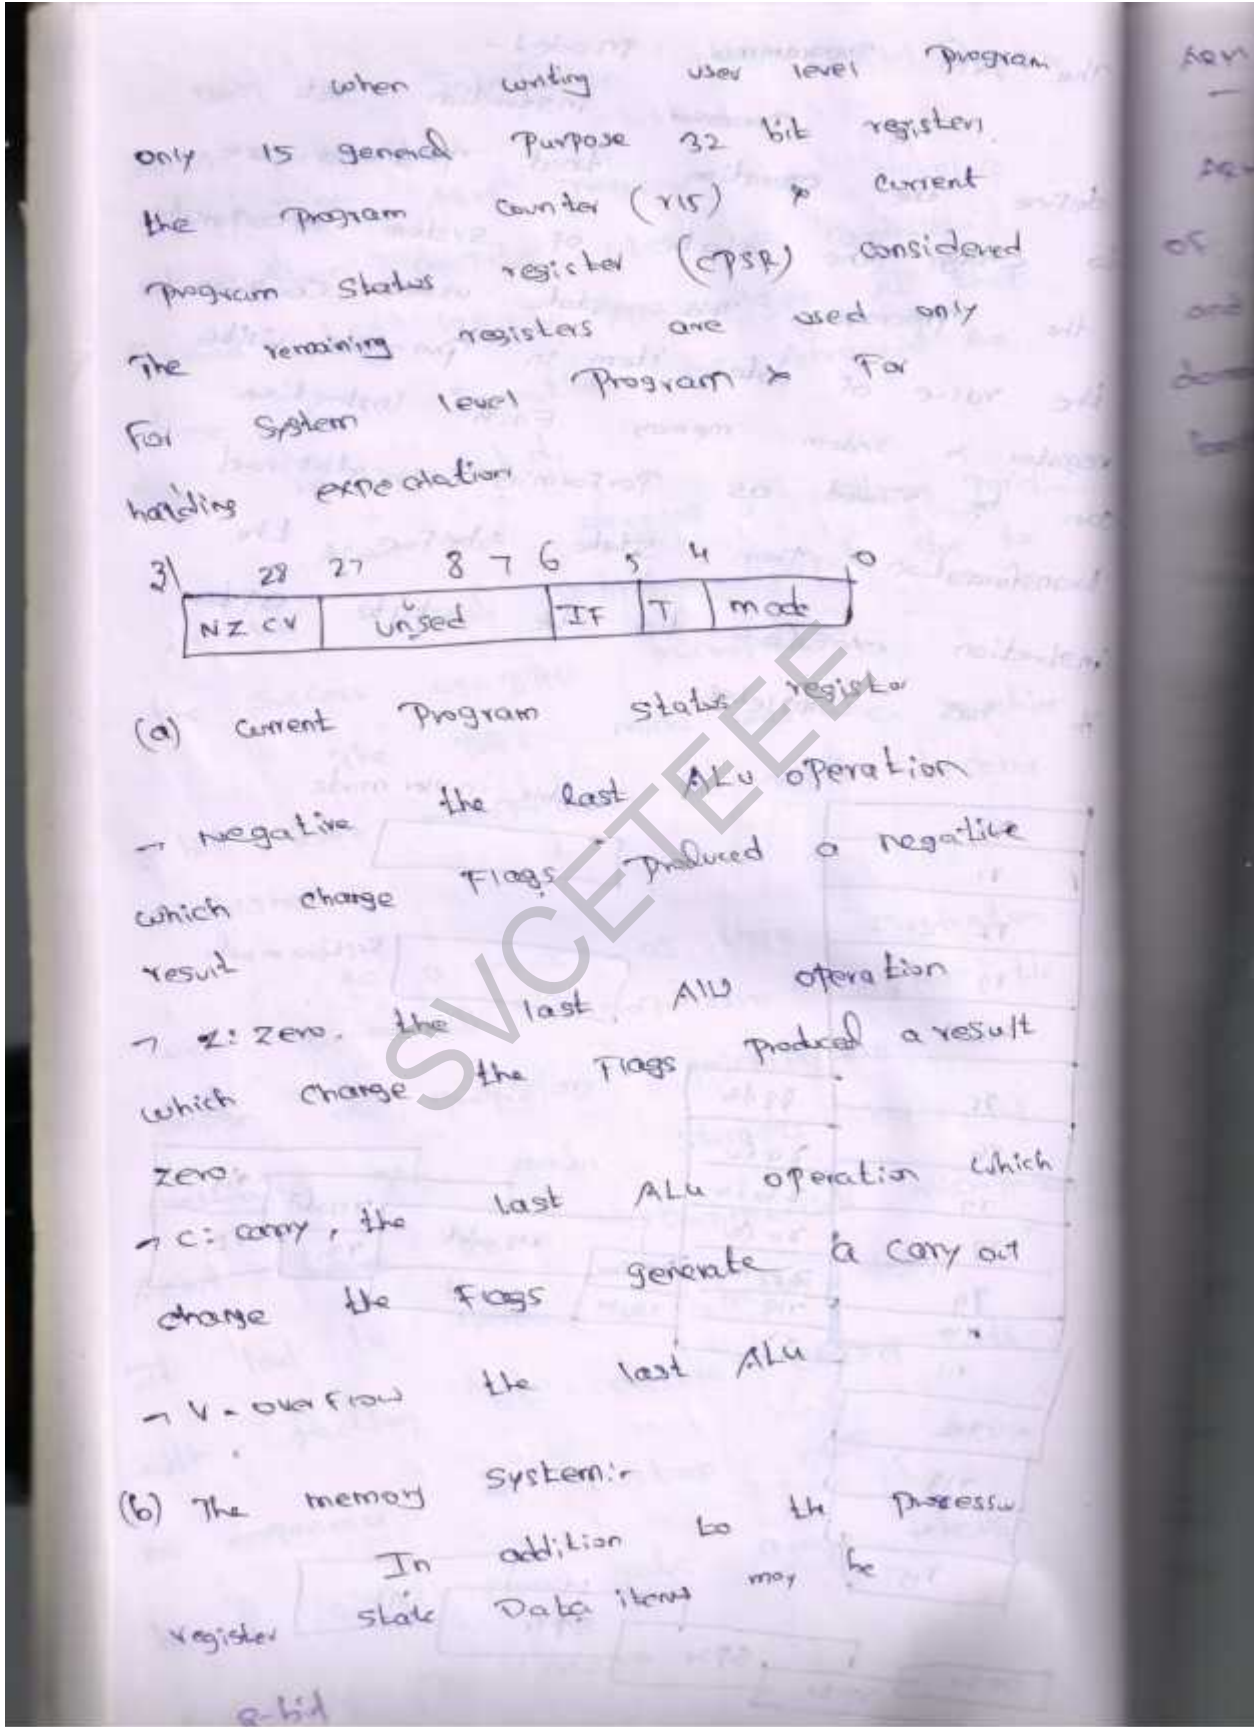 when writing user level program
only 15 general purpose 32 bit registers
the program counter (r15) & current
program status register (CPSR) considered
The remaining registers are used only
For System level Program & For
handing expectation
31 28 27 8 7 6 5 4 0
NZ CV unused IF T mode
(a) current Program status register
→ Negative the last ALU operation
which charge Flags produced a negative
result
→ Z: Zero. the last ALU operation
which charge the Flags produced a result
zero.
→ C: carry, the last ALU operation which
change the Flags generate a carry out
→ V - overflow the last ALU
(b) The memory System:-
In addition to the processor
register state Data items may be
8-bit
SVCETEEE